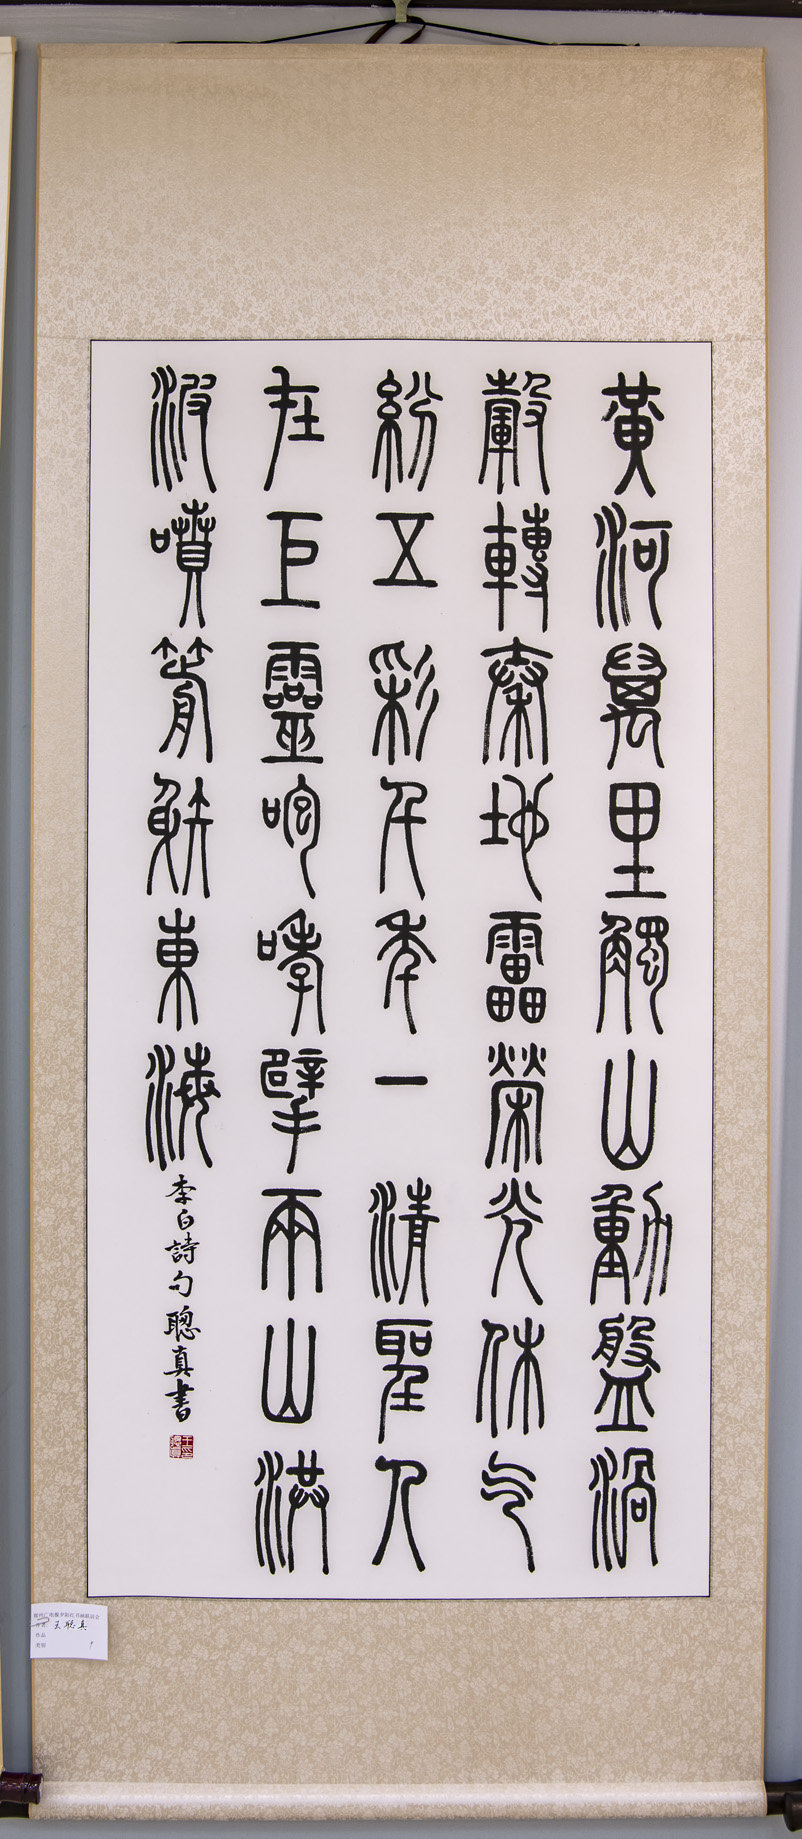 黃河萬里觸山動盤渦
轂轉秦地雷榮光休气
紛五彩千年一清聖人
在巨靈咆哮擘兩山洪
波噴箭射東海
李白詩句聰真書
王聪真
作品
类别